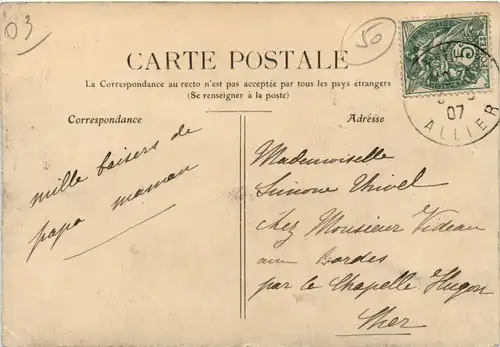 03
50
CARTE POSTALE
La Correspondance au recto n'est pas acceptée par tous les pays étrangers
(Se renseigner à la poste)
Correspondance
Adresse
5
07
ALLIER
mille baisers de
papa maman
Mademoiselle
Simone Thivel
chez Monsieur Videau
aux Bordes
par la Chapelle Hugon
Cher